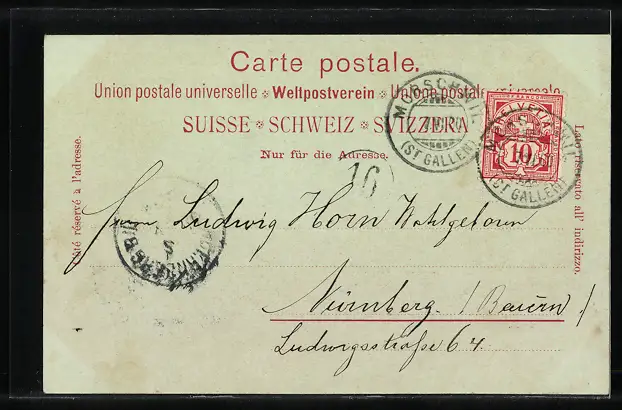 Carte postale.
Union postale universelle * Weltpostverein * Unione postale universale
SUISSE * SCHWEIZ * SVIZZERA
Nur für die Adresse.
Côté réservé à l'adresse.
Lato riservato all' indirizzo.
MÖRSCHWIL
(ST GALLEN)
HELVETIA
FRANCO
10
(ST GALLEN)
16
NUERNBERG
Herrn Ludwig Horn Wohlgeboren
Nürnberg. / Bayern /
Ludwigsstraße 64